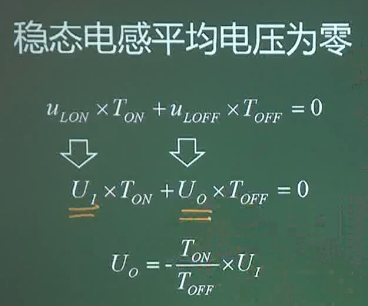 稳态电感平均电压为零
u_{LON} × T_{ON} + u_{LOFF} × T_{OFF} = 0
U_I × T_{ON} + U_O × T_{OFF} = 0
U_O = -\frac{T_{ON}}{T_{OFF}} × U_I